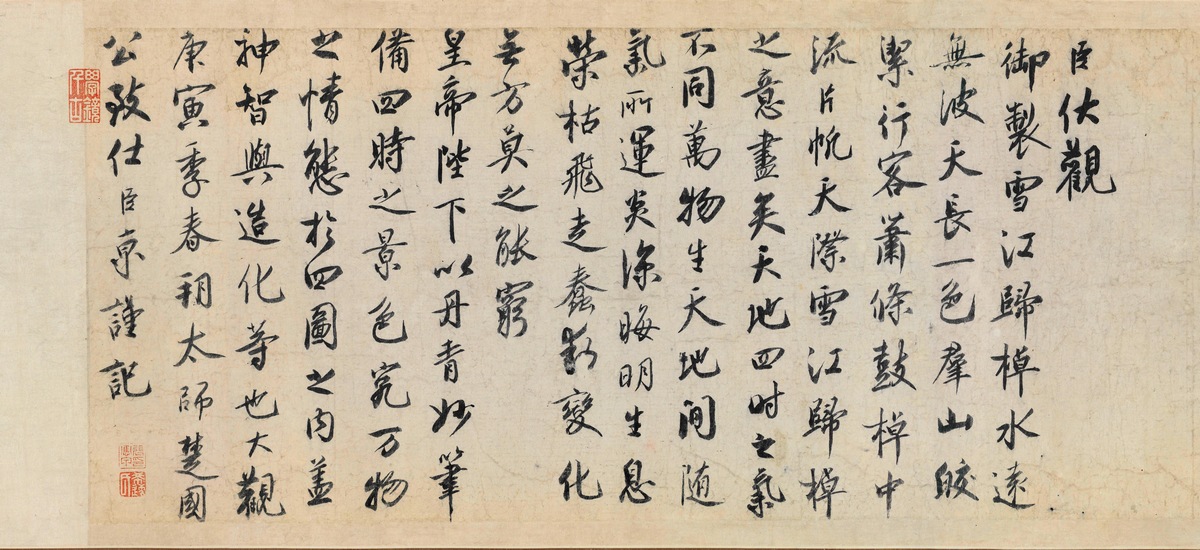 臣伏觀
御製雪江歸棹水遠
無波天長一色羣山皎
潔行客蕭條鼓棹中
流片帆天際雪江歸棹
之意盡矣天地四时之氣
不同萬物生天地間随
氣所運炎涼晦明生息
榮枯飛走蠢動變化
无方莫之能窮
皇帝陛下以丹青妙筆
備四時之景色究万物
之情態於四圖之内蓋
神智與造化等也大觀
庚寅季春朔太師楚國
公致仕臣京謹記